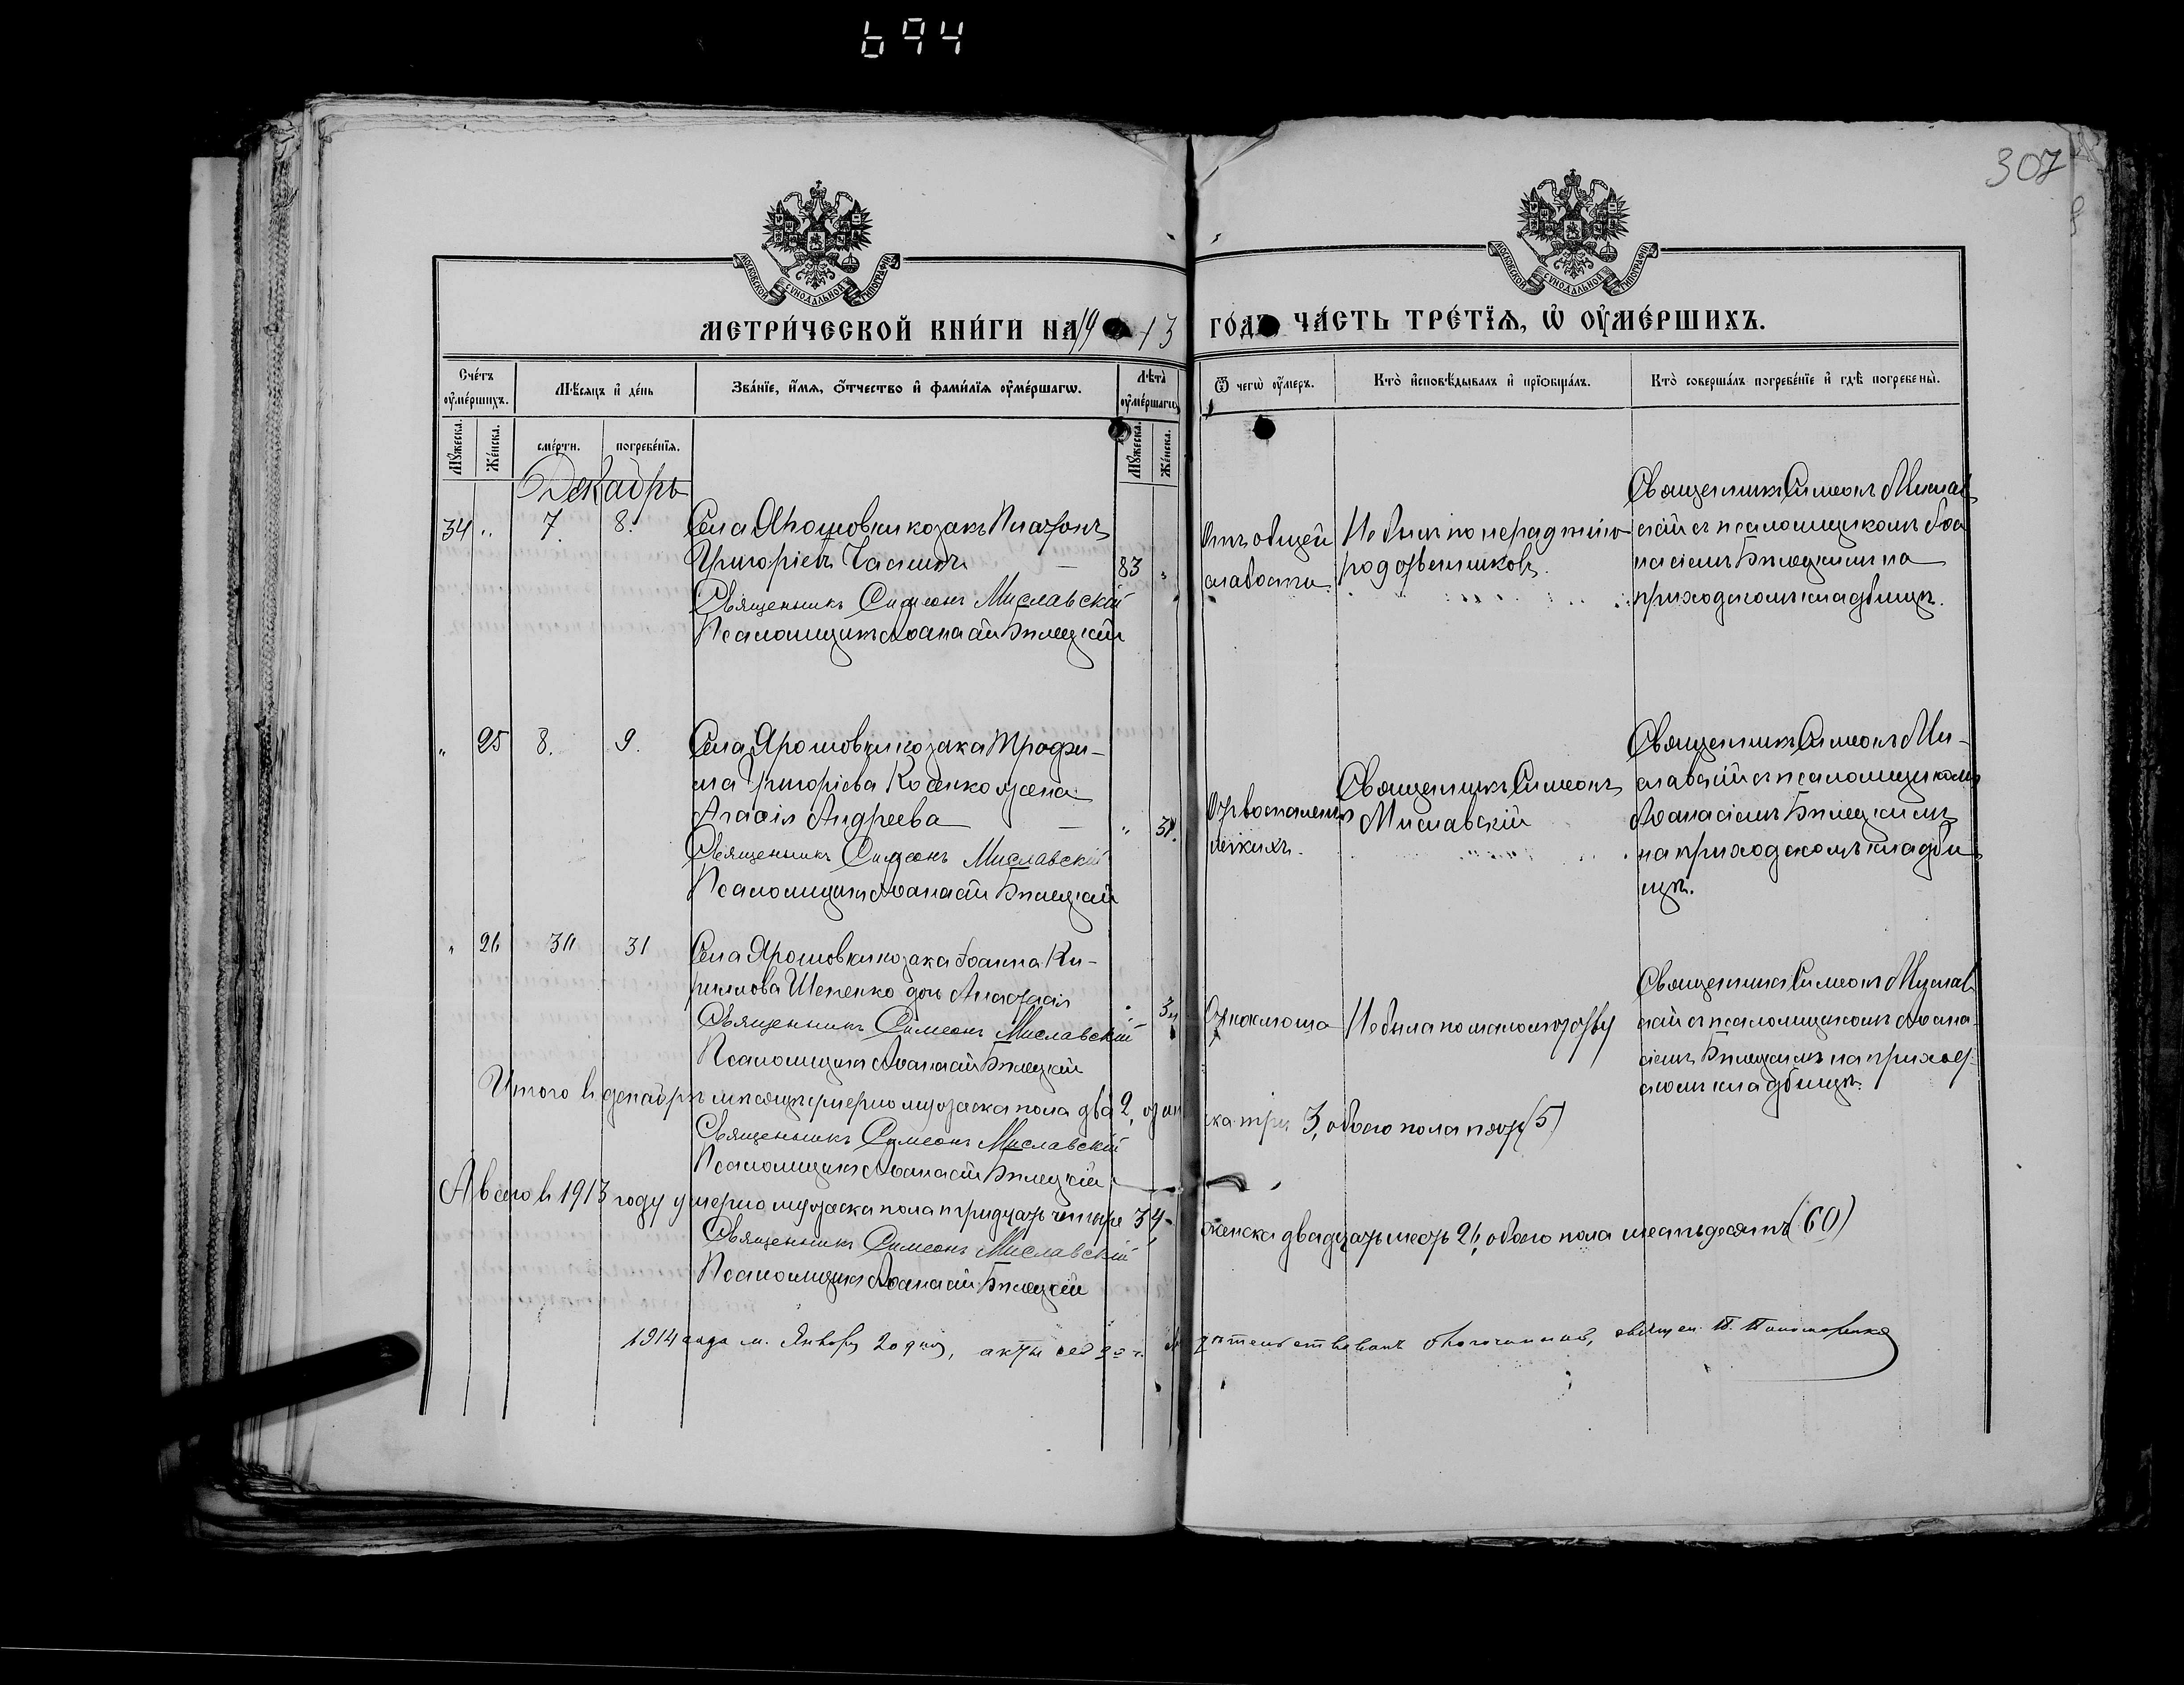 694
307
МОСКОВСКОЙ СѴНОДАЛЬНОЙ ТИПОГРАФІИ
МОСКОВСКОЙ СѴНОДАЛЬНОЙ ТИПОГРАФІИ
МЕТРИ́ЧЕСКОЙ КНИ́ГИ НА 1913 ГО́ДЪ, ЧА́СТЬ ТРЕ́ТЇѦ, Ѡ҆ ОУ҆МЕ́РШИХЪ.
Сче́тъ оу҆ме́ршихъ.
Мꙋ́жеска.
Же́нска.
Мѣ́сѧцъ и҆ де́нь
сме́рти.
погребе́нїѧ.
Зва́нїе, и҆́мѧ, ѻ҆́тчество и҆ фами́лїѧ оу҆ме́ршагѡ.
Лѣ́та оу҆ме́ршагѡ
Мꙋ́жеска.
Же́нска.
Ѿ чегѡ̀ оу҆́меръ.
Кто̀ и҆сповѣ́дывалъ и҆ прїѡбща́лъ.
Кто̀ соверша́лъ погребе́нїе и҆ гдѣ̀ погребены̀.
Декабрь
34 " 7. 8. Села Ярошовки козакъ Платонъ
Григоріевъ
83 "
Священникъ Симеонъ Миславскій
Псаломщикъ Аѳанасій Бѣлецкій
Отъ общей
слабости
Не былъ по нерадѣнію
родственниковъ.
Священникъ Симеонъ Мислав
скій съ псаломщикомъ Аѳа
насіемъ Бѣлецкимъ на
приходскомъ кладбищѣ.
" 25 8. 9. Села Ярошовки козака Трофи-
ма Григоріева Косенко жена
Агафія Андреева
Священникъ Симеонъ Миславскій
Псаломщикъ Аѳанасій Бѣлецкій
Отъ воспаленія
легкихъ.
Священникъ Симеонъ
Миславскій
Священникъ Симеонъ Ми-
славскій съ псаломщикомъ
Аѳанасіемъ Бѣлецкимъ
на приходскомъ кладби
щѣ.
" 26 30 31 Села Ярошовки козака Іоанна Ки-
риллова дочь Анастасія
Священникъ Симеонъ Миславскій
Псаломщикъ Аѳанасій Бѣлецкій
Отъ коклюша
Не была по малолѣтству
Священникъ Симеонъ Мислав
скій съ псаломщикомъ Аѳана-
сіемъ Бѣлецкимъ на приход-
скомъ кладбищѣ.
Итого въ декабрѣ мѣсяцѣ умерло мужеска пола два 2, женска три 3, обоего пола пять (5)
Священникъ Симеонъ Миславскій
Псаломщикъ Аѳанасій Бѣлецкій
А всего въ 1913 году умерло мужеска пола тридцать четыре 34, женска двадцать шесть 26, обоего пола шестьдесятъ (60)
Священникъ Симеонъ Миславскій
Псаломщикъ Аѳанасій Бѣлецкій
1914 года м. Января 20 дня, акты свидѣтельствовалъ благочинный, священ. П. Пономаренко